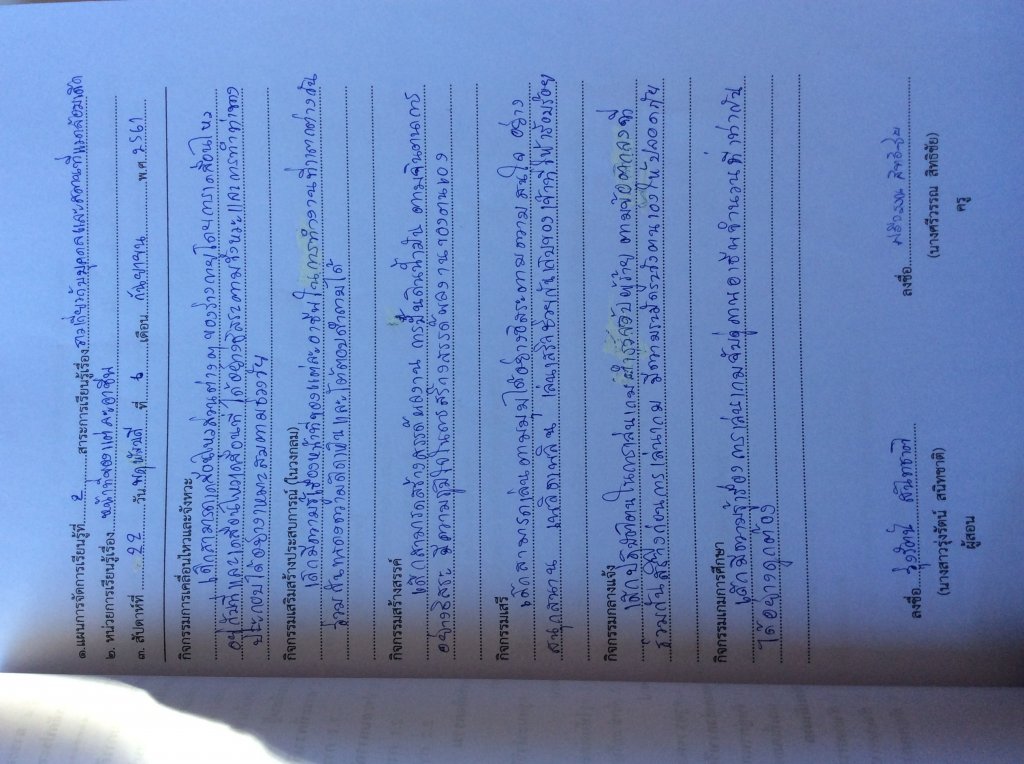 ๑.แผนการจัดการเรียนรู้ที่ 2 สาระการเรียนรู้เรื่อง ราวเกี่ยวกับบุคคลและสถานที่แวดล้อมเด็ก
๒. หน่วยการเรียนรู้เรื่อง หน้าที่ของแต่ละอาชีพ
๓. สัปดาห์ที่ 22 วัน พฤหัสบดี ที่ 6 เดือน กันยายน พ.ศ. 2561
กิจกรรมการเคลื่อนไหวและจังหวะ
เด็กสามารถเคลื่อนไหวส่วนต่างๆ ของร่างกายโดยการเคลื่อนไหว
อยู่กับที่และเคลื่อนไหวเคลื่อนที่ ได้อย่างอิสระตามจังหวะและการทำท่าทาง
ประกอบได้อย่างเหมาะสมตามช่วงวัย
กิจกรรมเสริมสร้างประสบการณ์ (ในวงกลม)
เด็กมีความรู้เรื่องหน้าที่ของแต่ละอาชีพในการทำงานที่แตกต่างกัน
ร่วมกันแสดงความคิดเห็นและโต้ตอบคำถามได้
กิจกรรมสร้างสรรค์
เด็กสามารถสร้างสรรค์ผลงาน การปั้นดินน้ำมัน ตามจินตนาการ
อย่างอิสระ มีความภูมิใจในการสร้างสรรค์ผลงานของตนเอง
กิจกรรมเสรี
เด็กสามารถเล่นตามมุมได้อย่างอิสระตามความสนใจ อย่าง
สนุกสนาน เพลิดเพลิน เล่นเสร็จช่วยกันเก็บของเข้าที่ให้เรียบร้อย
กิจกรรมกลางแจ้ง
เด็กปฏิบัติตนในการเล่นเกมตำรวจจับผู้ร้าย ตามข้อตกลงที่
ร่วมกันตั้งไว้ก่อนการเล่นเกม มีความระมัดระวังตนเองให้ปลอดภัย
กิจกรรมเกมการศึกษา
เด็กมีความรู้เรื่อง การเล่นเกมจับคู่ภาพอาชีพจำนวนที่เท่ากัน
ได้อย่างถูกต้อง
ลงชื่อ รุ่งรัตน์ สนิทชาติ
(นางสาวรุ่งรัตน์ สนิทชาติ)
ผู้สอน
ลงชื่อ ศรีวรรณ สิทธิชัย
(นางศรีวรรณ สิทธิชัย)
ครู